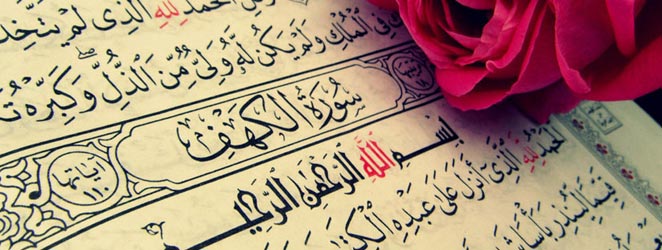 ٱلْحَمْدُ لِلَّهِ ٱلَّذِى لَمْ يَتَّخِذْ
فِى ٱلْمُلْكِ وَلَمْ يَكُن لَّهُۥ وَلِىٌّ مِّنَ ٱلذُّلِّ ۖ وَكَبِّرْهُ
سُورَةُ الْكَهْفِ
آياتها ١١٠
بِسْمِ ٱللَّهِ ٱلرَّحْمَٰنِ ٱلرَّحِيمِ
ٱلْحَمْدُ لِلَّهِ ٱلَّذِىٓ أَنزَلَ عَلَىٰ عَبْدِهِ ٱلْكِتَٰ
قَيِّمًا لِّيُنذِرَ بَأْسًا